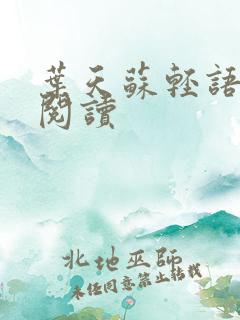 葉天蘇輕語
閱讀
北地巫師
未經同意禁止轉載